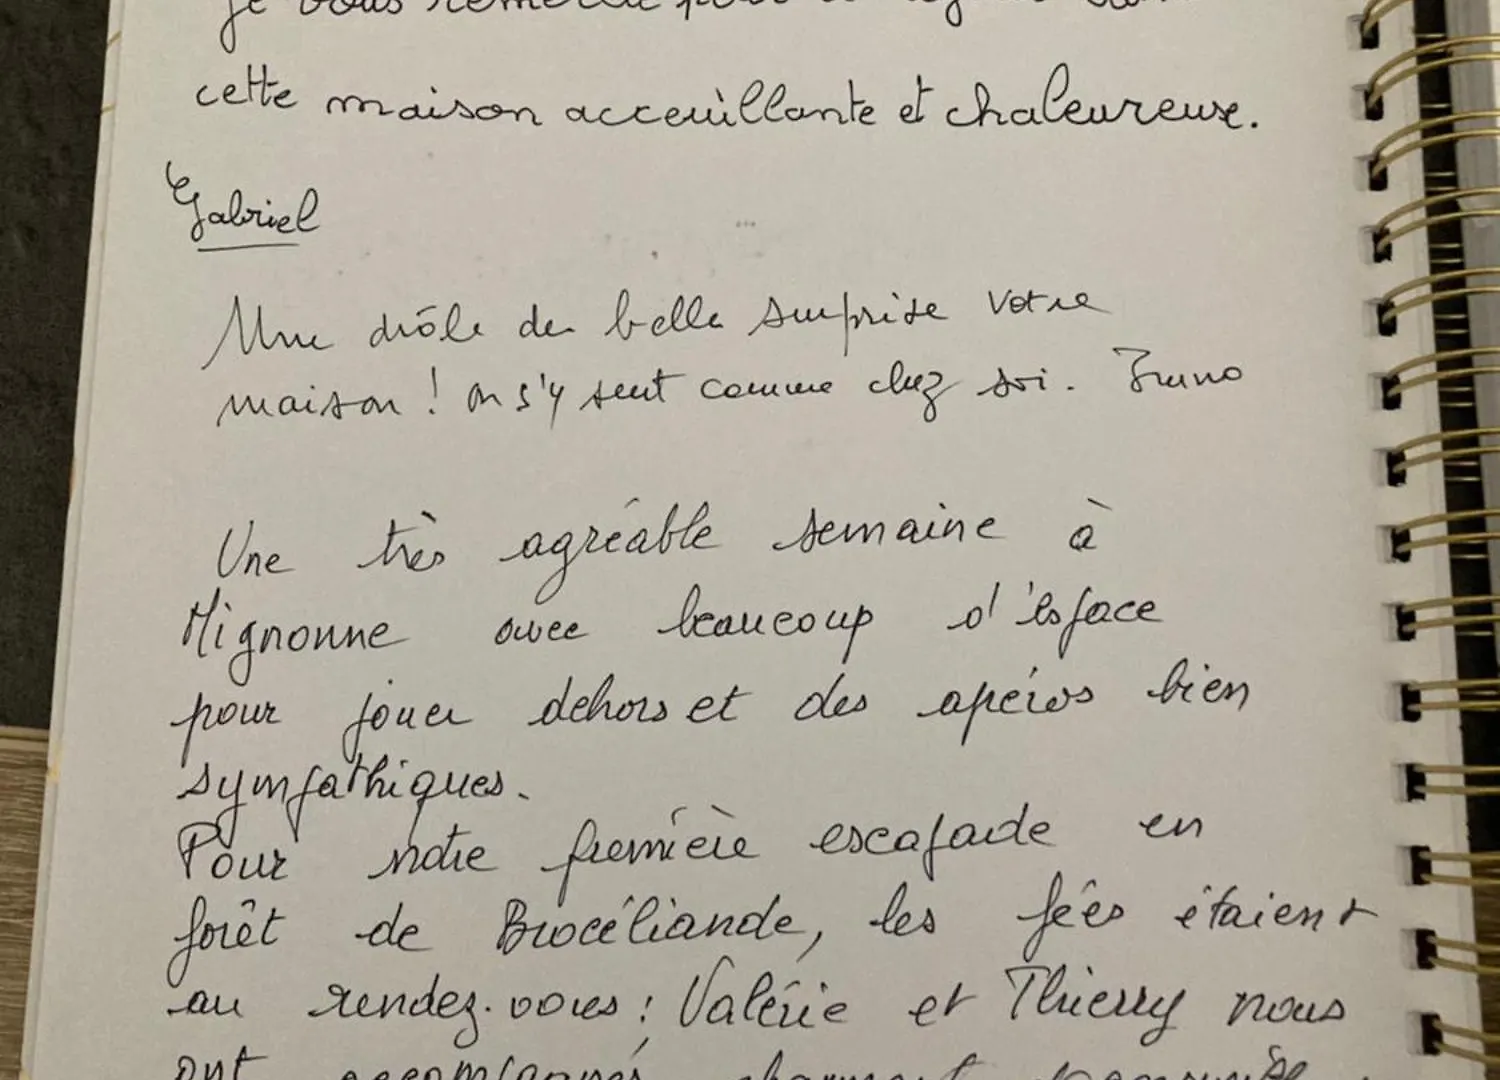 je vous remercie pour
cette maison acceuillante et chaleureuse.
Gabriel
Une drôle de belle surprise votre
maison ! on s'y sent comme chez soi. Bruno
Une très agréable semaine à
Mignonne avec beaucoup d'espace
pour jouer dehors et des apéros bien
sympathiques.
Pour notre première escapade en
forêt de Brocéliande, les fées étaient
au rendez-vous : Valérie et Thierry nous
ont accompagnés